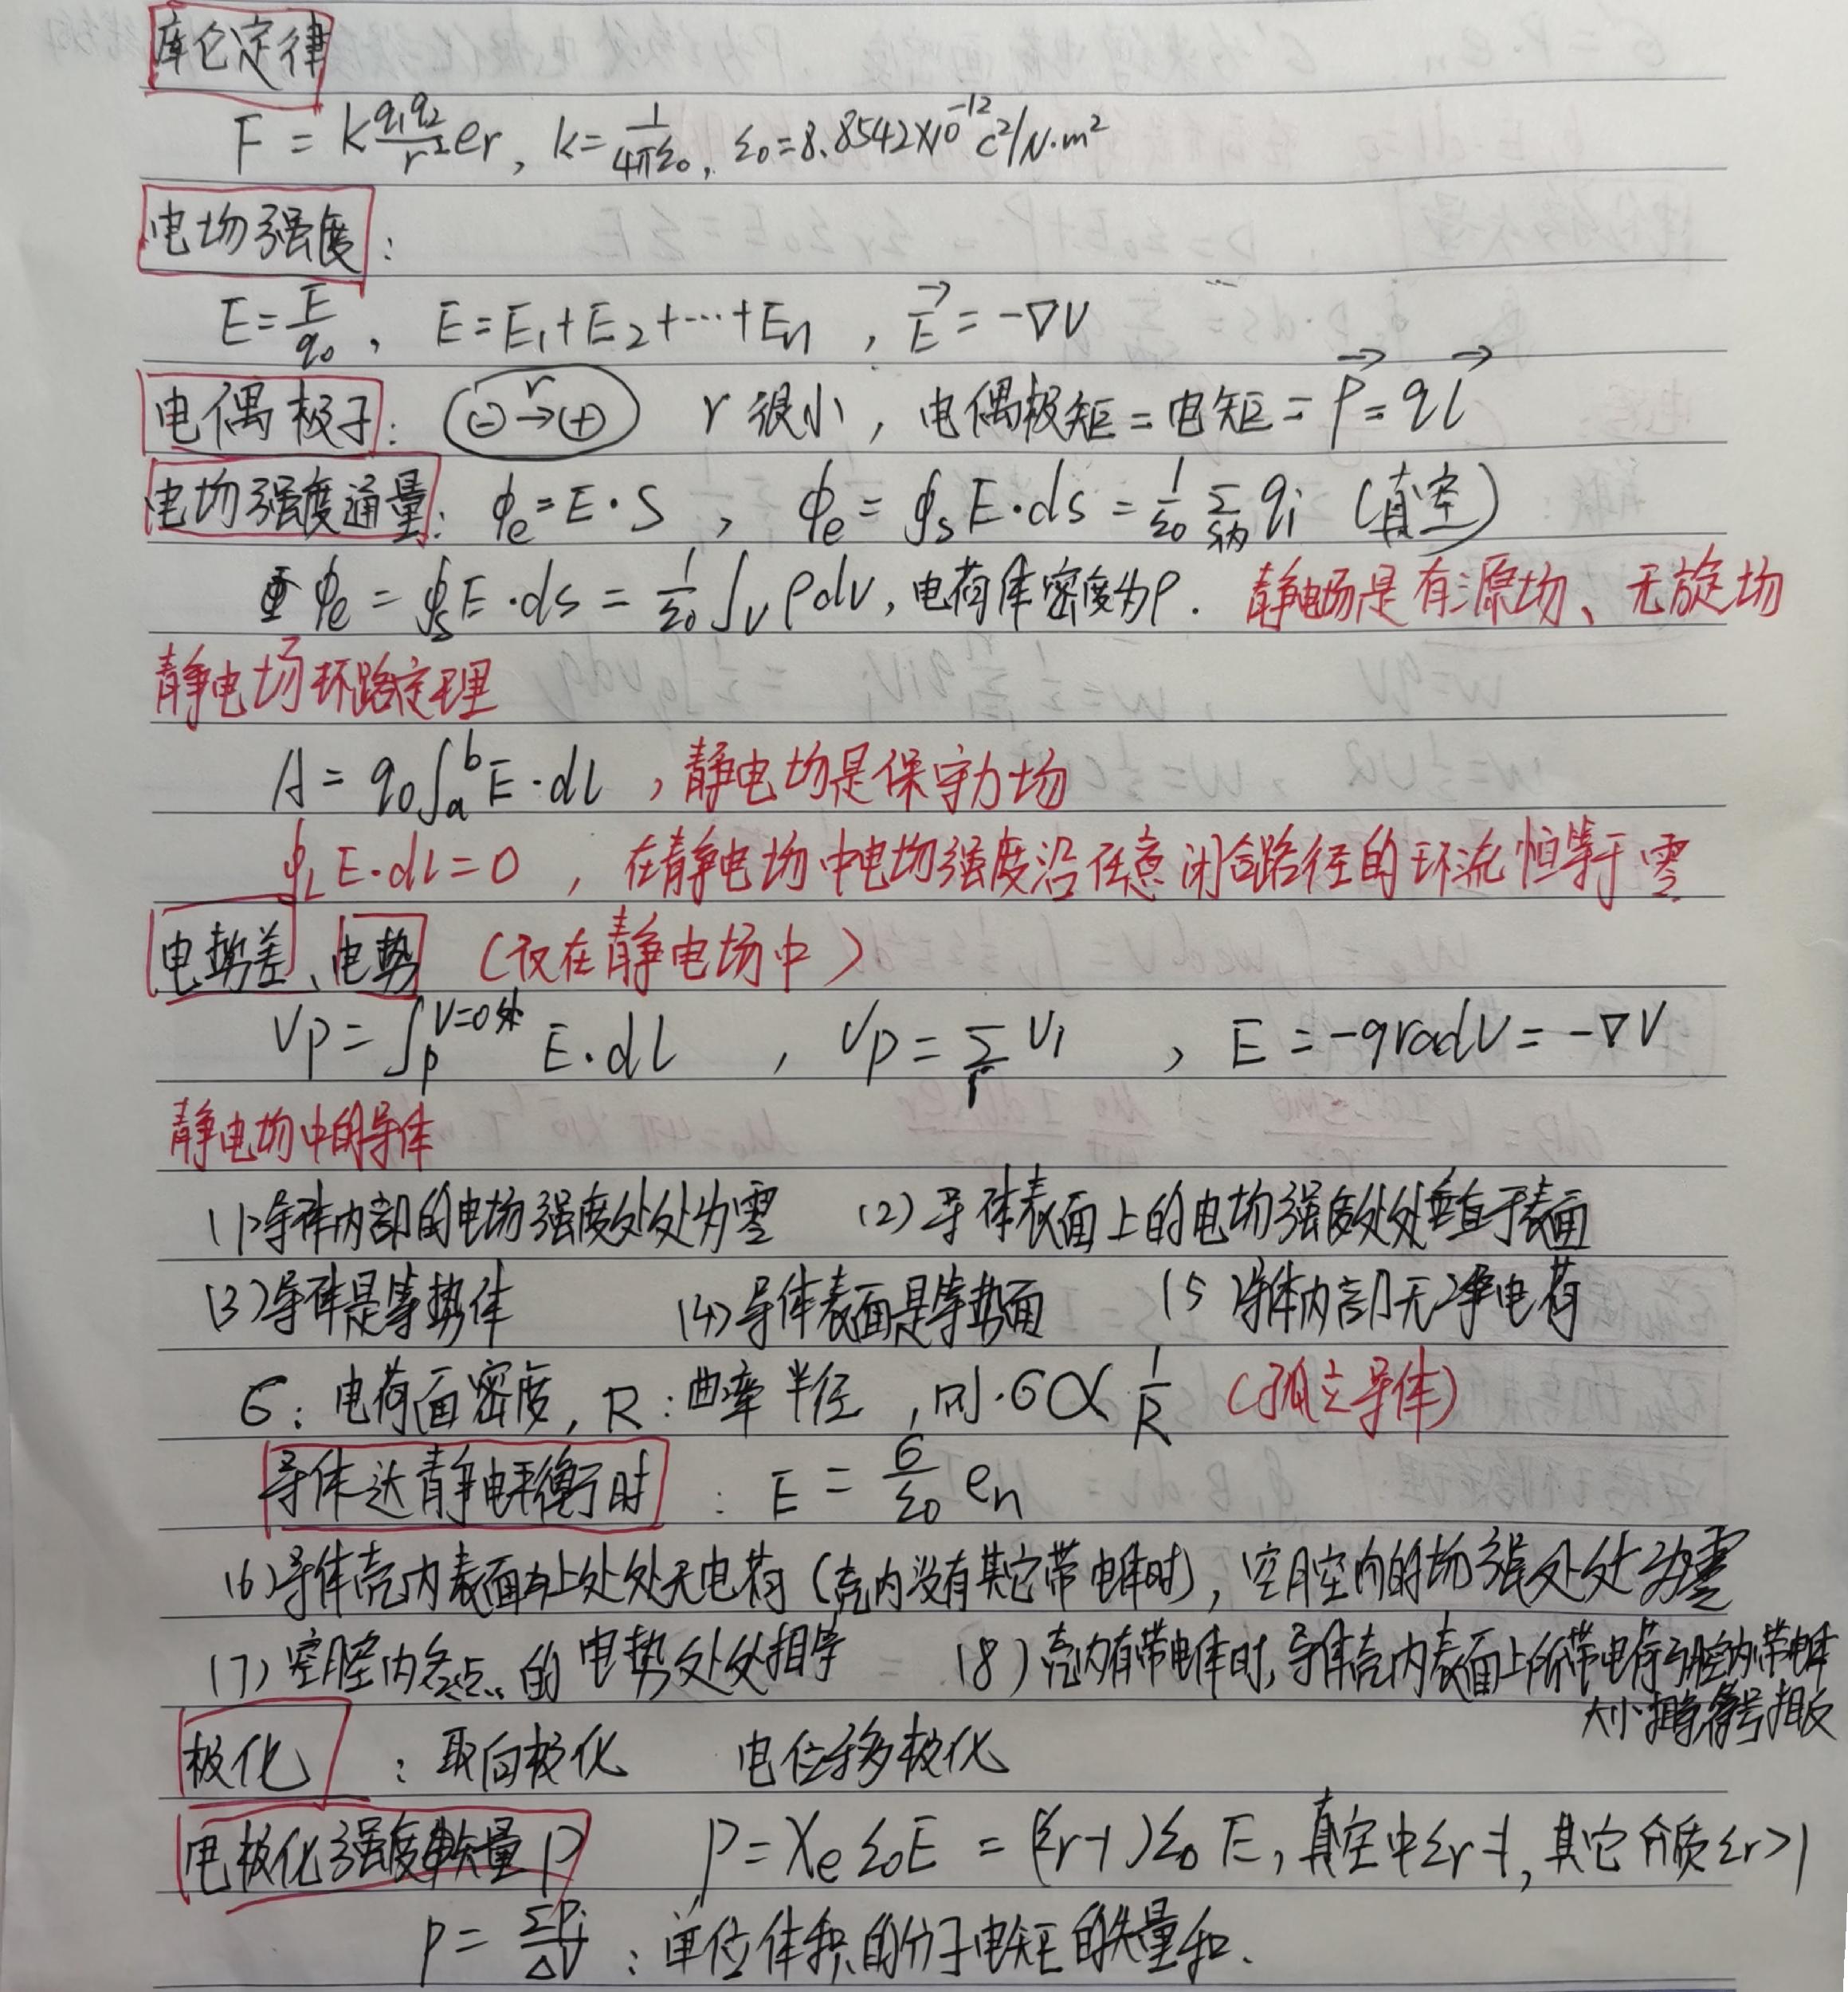 库仑定律
F = k q₁q₂/r² er, k = 1/4πε₀, ε₀=8.8542×10⁻¹² C²/N·m²
电场强度:
E = F/q₀, E = E₁+E₂+⋯+En, E⃗ = -∇V
电偶极子: ⊖ r→ ⊕ r 很小, 电偶极矩 = 电矩 = P⃗ = ql⃗
电场强度通量: ϕe = E·S, ϕe = ∮s E·ds = 1/ε₀ Σ S内 qi (真空)
ϕe = ∮s E·ds = 1/ε₀ ∫V ρdV, 电荷体密度为ρ. 静电场是有源场、无旋场
静电场环路定理
A = q₀∫ₐᵇ E·dl, 静电场是保守力场
∮L E·dl = 0, 在静电场中电场强度沿任意闭合路径的环流恒等于零
电势差、电势 (仅在静电场中)
Vp = ∫p^V=0处 E·dl, Vp = Σi Vi, E = -gradV = -∇V
静电场中的导体
(1)导体内部的电场强度处处为零 (2)导体表面上的电场强度处处垂直于表面
(3)导体是等势体 (4)导体表面是等势面 (5)导体内部无净电荷
σ: 电荷面密度, R: 曲率半径, 则·σ∝1/R (孤立导体)
导体达静电平衡时: E = σ/ε₀ en
(6)导体壳内表面上处处无电荷(壳内没有其它带电体时), 空腔内的场强处处为零
(7)空腔内各点的电势处处相等 (8)壳内有带电体时, 导体壳内表面上所带电荷与腔内带电体
大小相等符号相反
极化: 取向极化 电位移极化
电极化强度矢量P P = χeε₀E = (εr-1)ε₀E, 真空中εr=1, 其它介质εr>1
P = ΣPi/ΔV: 单位体积的分子电矩的矢量和.